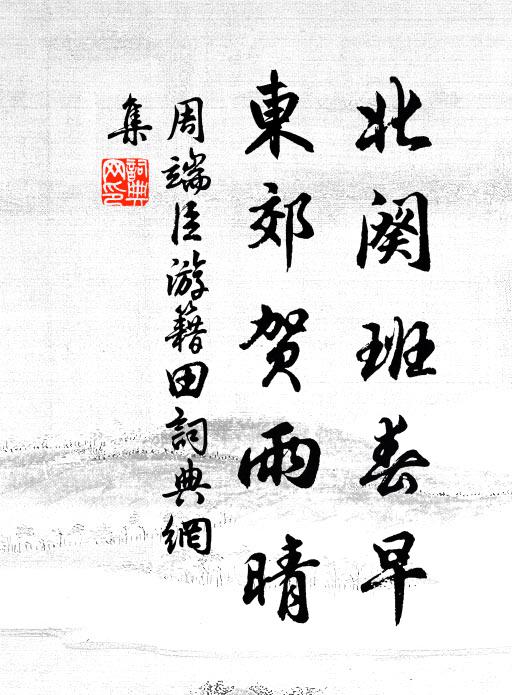 北闕班春早
東郊賀雨晴
周端臣游籍田詞典網
集
詞典
网印